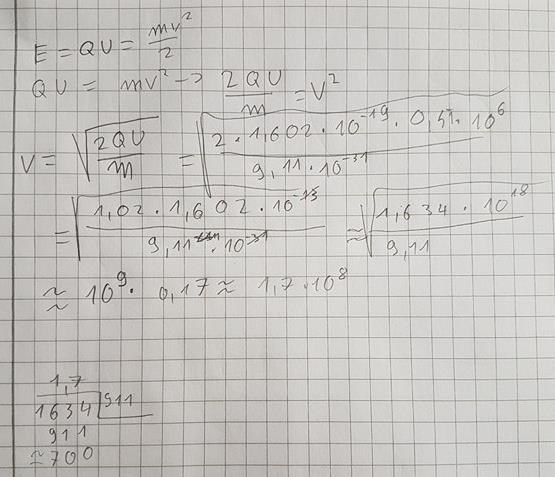 E = QU = mv²/2
QU = mv² → 2QU/m = V²
V = √(2QU/m) = √(2 · 1,602 · 10⁻¹⁹ · 0,51 · 10⁶ / 9,11 · 10⁻³¹)
= √(1,02 · 1,602 · 10⁻¹³ / 9,11 · 10⁻³¹) ≈ √(1,634 · 10¹⁸ / 9,11)
≈ 10⁹ · 0,17 ≈ 1,7 · 10⁸
1,7
1634 911
911
≈700